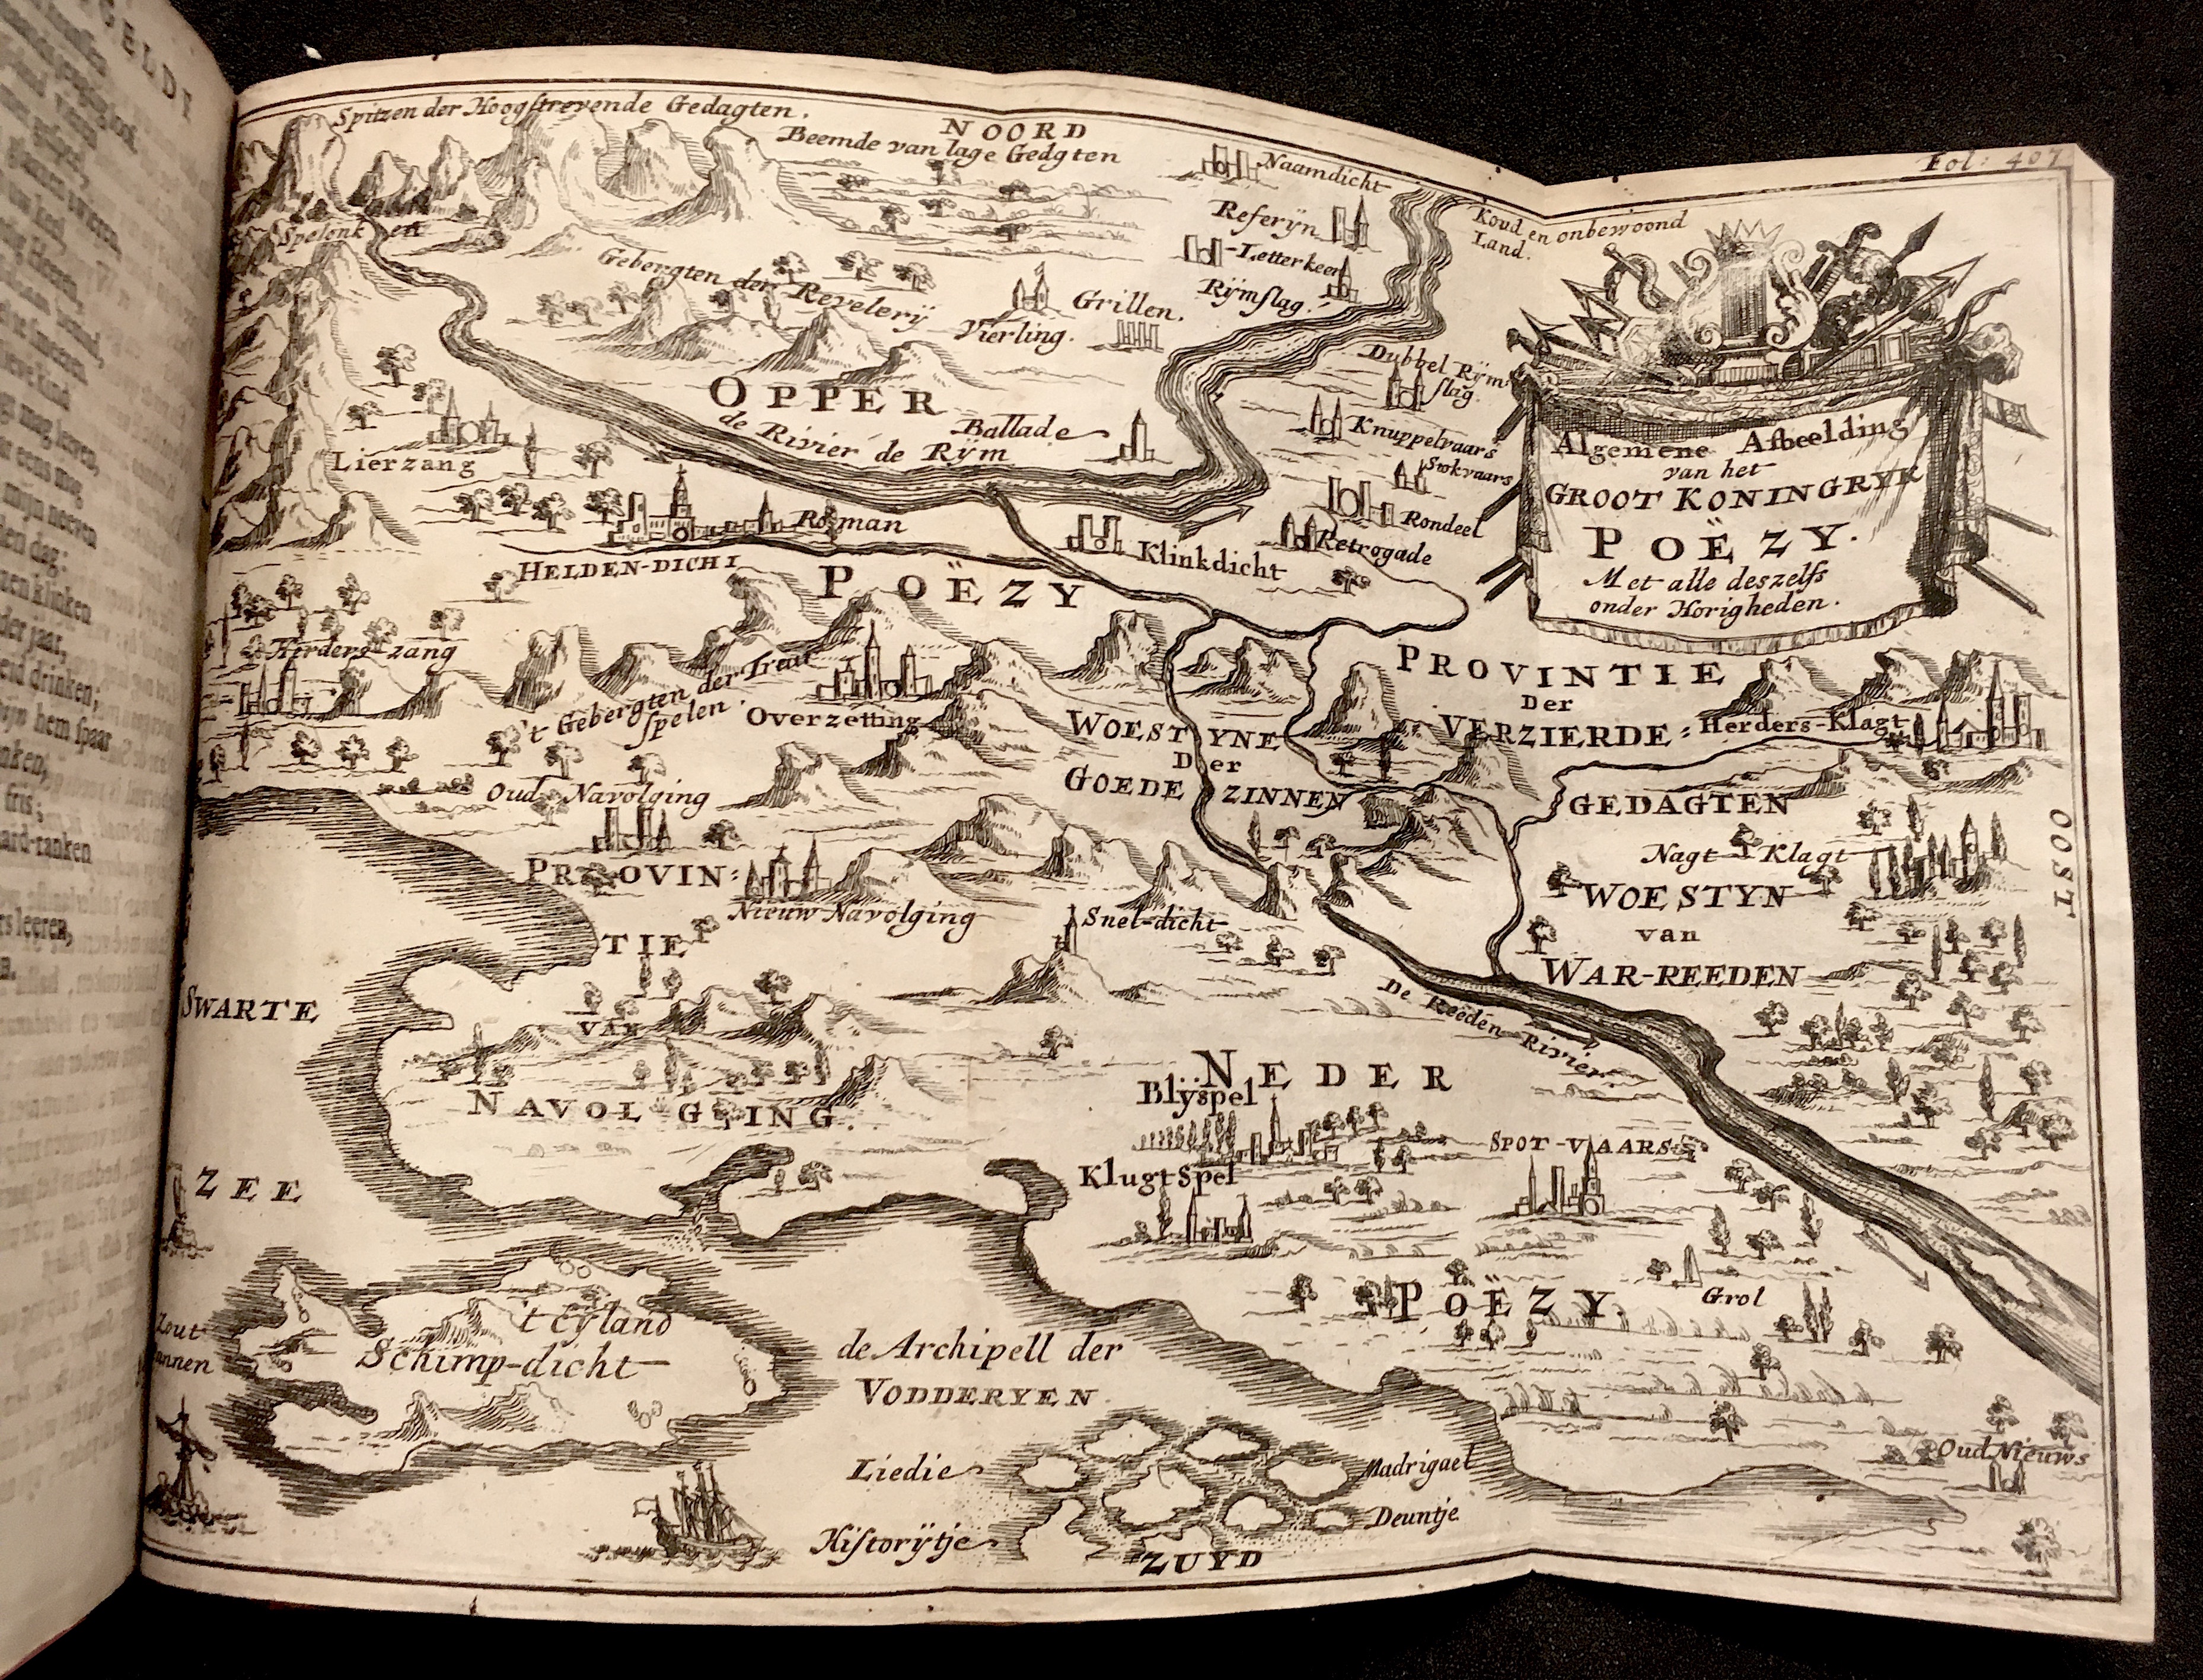 Fol: 407
Spitzen der Hoogstrevende Gedagten.
NOORD
Beemde van lage Gedgten
Naamdicht
Koud en onbewoond
Land.
Referÿn
Letterkeer
Rÿmslag.
Spelonken
Gebergten der Revelerÿ
Grillen.
Vierling.
Dubbel Rÿm
slag.
OPPER
de Rivier de Rÿm
Ballade
Knuppelvaars
Stokvaars
Rondeel
Retrogade
Klinkdicht
Lierzang
Roman
HELDEN-DICHT
POËZY
Algemene Afbeelding
van het
GROOT KONINGRYK
POËZY.
Met alle deszelfs
onder Horigheden.
Herders-zang
't Gebergten der Treur
spelen
Overzetting
WOESTYNE
Der
GOEDE ZINNEN
PROVINTIE
Der
VERZIERDE
GEDAGTEN
Herders-Klagt
OOST
Oud Navolging
PROVIN:
TIE
VAN
NAVOLGING.
Nieuw Navolging
Snel-dicht
Nagt-Klagt
WOESTYN
van
WAR-REEDEN
De Reeden Rivier
SWARTE
ZEE
NEDER
Blÿspel
Klugt Spel
SPOT-VAARS
POËZY.
Grol
Zout
annen
't Eyland
Schimp-dicht
de Archipell der
VODDERYEN
Liedie
Historÿtje
Madrigael
Deuntje
Oud Nieuws
ZUYD